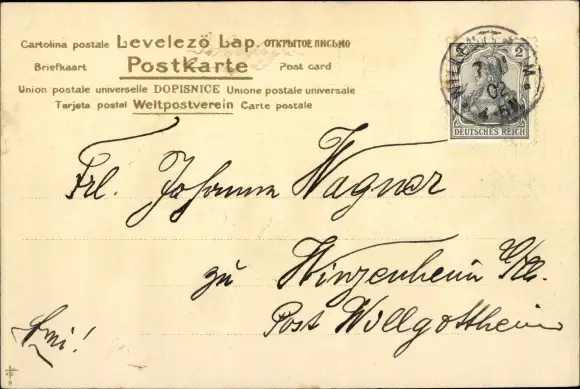 Cartolina postale Levelező Lap. ОТКРЫТОЕ ПИСЬМО
Briefkaart Postkarte Post card
Union postale universelle DOPISNICE Unione postale universale
Tarjeta postal Weltpostverein Carte postale
2
02
DEUTSCHES REICH
Frl. Johanna Wagner
zu Winzenheim
Post Willgottheim